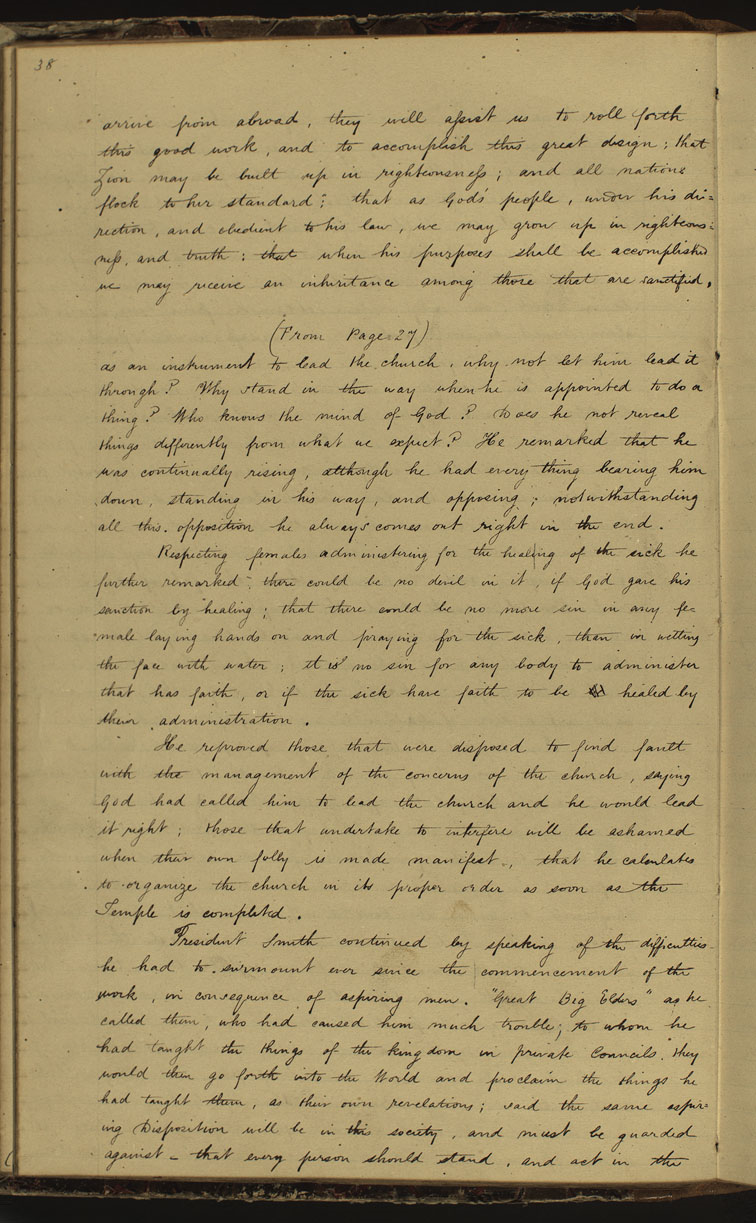 38
arrive from abroad, they will assist us to roll forth
this good work, and to accomplish this great design; that
Zion may be built up in righteousness; and all nations
flock to her standard; that as God's people, under his di=
rection, and obedient to his law, we may grow up in righteous=
ness, and truth; that when his purposes shall be accomplished
we may receive an inheritance among those that are sanctified.
(From Page 27)
as an instrument to lead the church, why not let him lead it
through? Why stand in the way when he is appointed to do a
thing? Who knows the mind of God? Does he not reveal
things differently from what we expect? He remarked that he
was continually rising, although he had every thing bearing him
down, standing in his way, and opposing; notwithstanding
all this opposition he always comes out right in the end.
Respecting females administering for the healing of the sick he
further remarked, there could be no devil in it, if God gave his
sanction by healing; that there could be no more sin in any fe=
male laying hands on and praying for the sick, than in wetting
the face with water; it is no sin for any body to administer
that has faith, or if the sick have faith to be healed by
their administration.
He reproved those that were disposed to find fault
with the management of the concerns of the church, saying
God had called him to lead the church and he would lead
it right; those that undertake to interfere will be ashamed
when their own folly is made manifest, that he calculates
to organize the church in its proper order as soon as the
Temple is completed.
President Smith continued by speaking of the difficulties
he had to surmount ever since the commencement of the
work, in consequence of aspiring men. "Great Big Elders" as he
called them, who had caused him much trouble; to whom he
had taught the things of the kingdom in private Councils, they
would then go forth into the World and proclaim the things he
had taught them, as their own revelations; said the same aspir=
ing Disposition will be in this society, and must be guarded
against - that every person should stand, and act in the